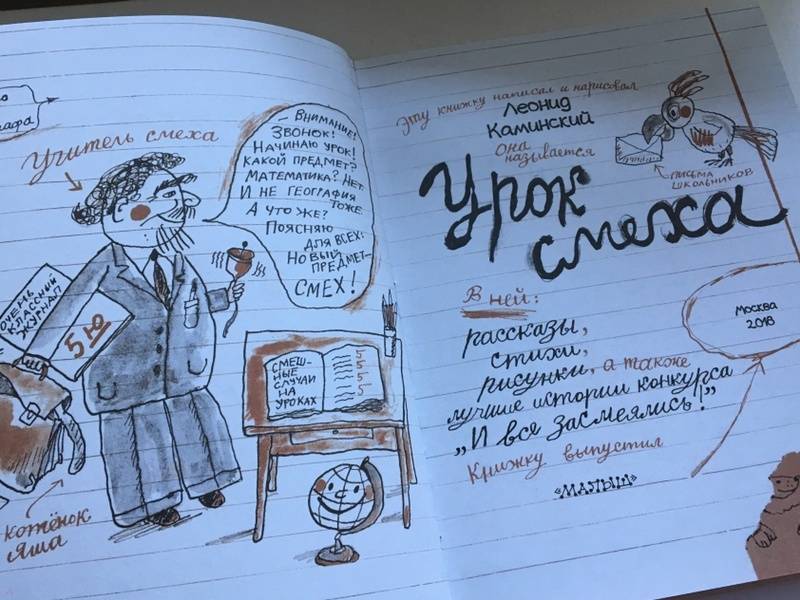 Учитель смеха
— Внимание!
Звонок!
Начинаю урок!
Какой предмет?
Математика? Нет
И не география
тоже
А что же?
Поясняю
для всех:
Новый
предмет —
Смех!
очень
классный
журнал
5 Ю
Смеш-
ные
случаи
на
уроках
5
5
5
5
котёнок
Яша
Эту книжку написал и нарисовал
Леонид
Каминский
Она
называется
письма
школьников
Урок
смеха
В ней:
рассказы,
стихи,
рисунки, а также
лучшие истории конкурса
„И все засмеялись!”
Книжку выпустил
«МАЛЫШ»
Москва
2018